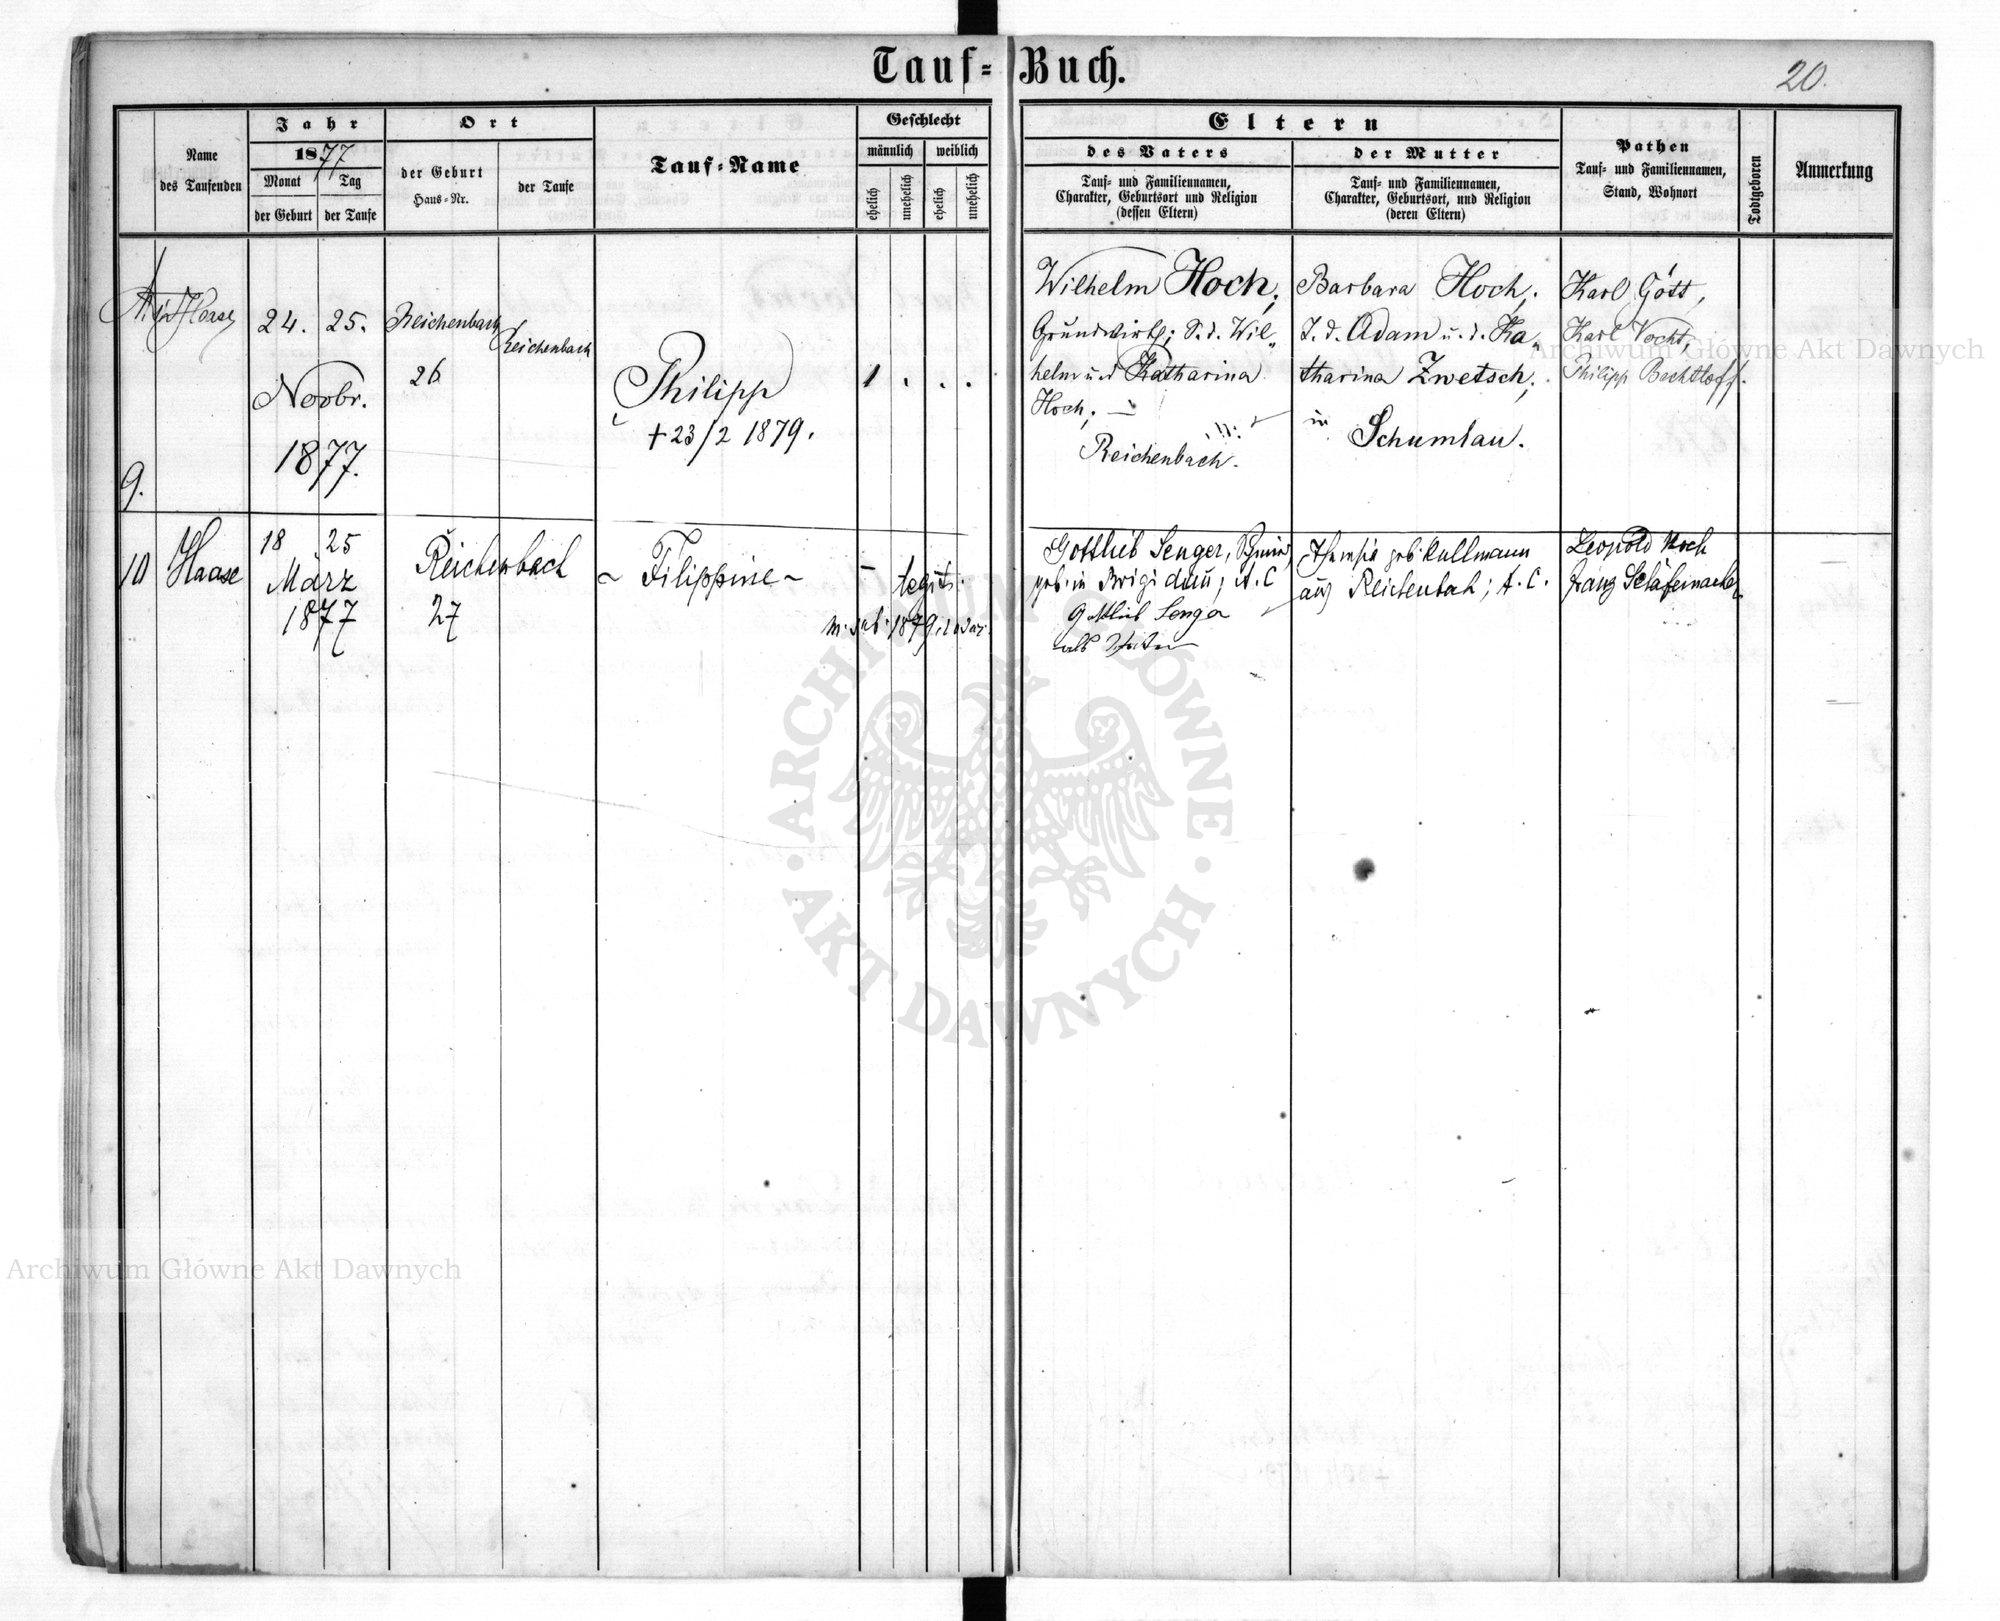 Tauf-Buch.
20.
Name
des Taufenden
Jahr
1877
Monat
Tag
der Geburt
der Taufe
Ort
der Geburt
Haus-Nr.
der Taufe
Tauf-Name
Geschlecht
männlich
weiblich
ehelich
unehelich
ehelich
unehelich
Eltern
des Vaters
Tauf- und Familiennamen,
Charakter, Geburtsort und Religion
(dessen Eltern)
der Mutter
Tauf- und Familiennamen,
Charakter, Geburtsort, und Religion
(deren Eltern)
Pathen
Tauf- und Familiennamen,
Stand, Wohnort
Todtgeboren
Anmerkung
9.
Haase
24. 25.
Novbr.
1877.
Reichenbach
26
Reichenbach
Philipp
+ 23/2 1879.
1 . . .
Wilhelm Hoch,
Grundwirth; S. d. Wil„
helm und Katharina
Hoch,
Reichenbach.
Barbara Hoch,
T. d. Adam u. d. Ka„
tharina Zwetsch,
in
Schumlau.
Karl Gött,
Karl Vocht,
Philipp Bechtloff.
10
Haase
18 25
März
1877
Reichenbach
27
~ Filippine ~
– legit.
1879
Gottlieb Senger, Schmied,
geb. in Brigidau; A. C.
Gottlieb Senger
als Vater
geb. Kullmann
aus Reichenbach; A. C.
Leopold Koch
Franz
Archiwum Główne Akt Dawnych
ARCHIWUM GŁÓWNE · AKT DAWNYCH ·
Archiwum Główne Akt Dawnych